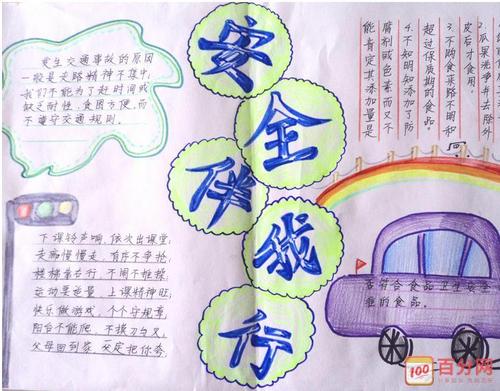 安全伴我行
发生交通事故的原因
一般是走路精神不集中,
我们不能为了赶时间或
缺乏耐性、贪图方便,而
不遵守交通规则。
下课铃声响,依次出课堂;
走廊慢慢走,有序不争抢;
楼梯靠右行,不闹不推搡;
运动要适量,上课精神旺;
快乐做游戏,个个守规章;
阳台不能爬,不摸刀与叉,
父母回到家,
2.瓜果洗净并去除外
皮后才食用。
3.不购食来路不明和
超过保质期的食品。
4.不知明知添加了防
腐剂或色素而又不
能肯定其添加量是
否符合食品卫生安全
准的食品。
100
百分网